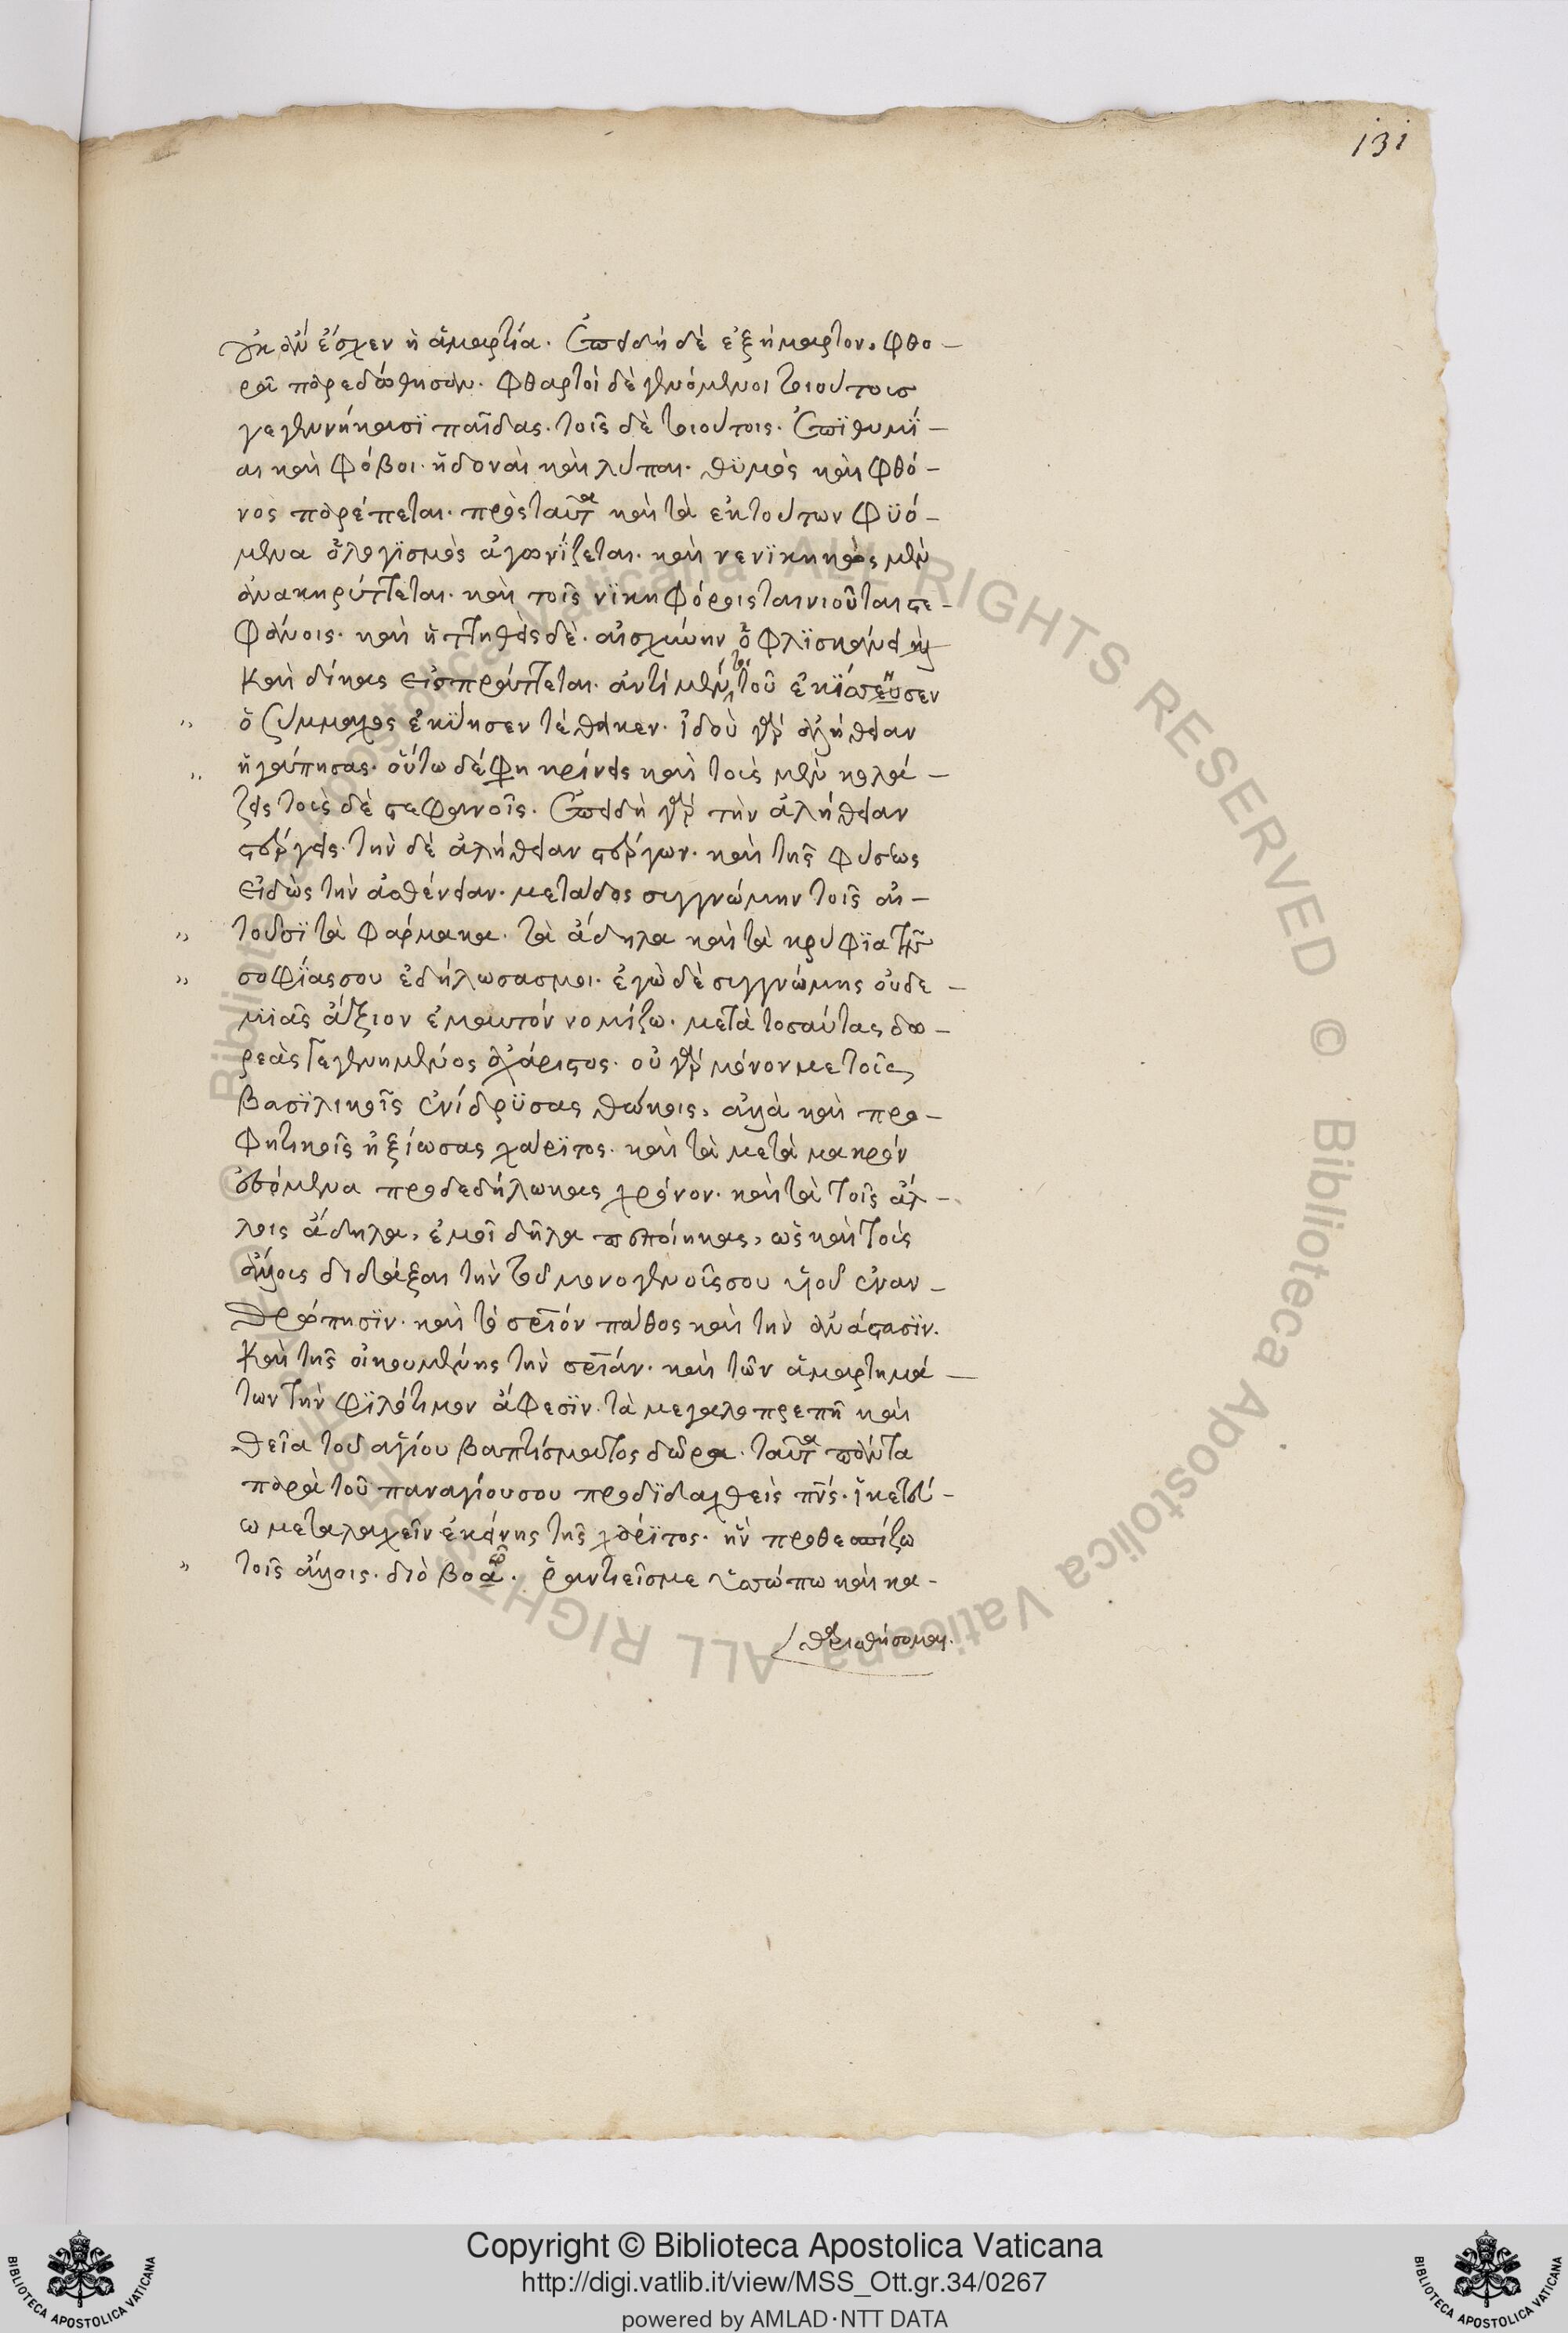 131
οὐκ ἂν ἔσχεν ἡ ἁμαρτία. ἐπειδὴ δὲ ἐξήμαρτον, φθο-
ρᾷ παρεδόθησαν. φθαρτοὶ δὲ γενόμενοι τοιούτους
γεγεννήκασϊ παῖδας. τοῖς δὲ τοιούτοις. ἐπϊθυμΐ-
αι καὶ φόβοι. ἡδοναὶ καὶ λύπαι. θϋμὸς καὶ φθό-
νος παρέπεται. πρὸς ταῦτα καὶ τὰ ἐκ τούτων φϋό-
μενα ὁ λογϊσμὸς ἀγωνΐζεται. καὶ νενϊκηκὼς μὲν
ἀνακηρύττεται. καὶ τοῖς νϊκηφόροις ταινιοῦται στε-
φάνοις. καὶ ἡττηθεὶς δὲ. αἰσχύνην ὀφλϊσκάνει
καὶ δίκας εἰσπράττεται. ἀντὶ μέν τοι τοῦ ἐκΐσσησεν
ὁ Σύμμαχος ἐκΰησεν τέθεικεν. ἰδοὺ γὰρ ἀλήθειαν
ἠγάπησας. οὕτω δέ φη κρίνεις καὶ τοὺς μὲν κολά-
ζεις τοὺς δὲ στεφανοῖς. ἐπειδὴ γὰρ τὴν ἀλήθειαν
στέργεις. τὴν δὲ ἀλήθειαν στέργων. καὶ τῆς φύσεως
εἰδὼς τὴν ἀσθένειαν. μεταδος συγγνώμην τοῖς αἰ-
τοῦσϊ τὰ φάρμακα. τὰ ἄδηλα καὶ τὰ κρύφϊα τῆς
σοφΐας σου ἐδήλωσας μοι. ἐγὼ δὲ συγγνώμης οὐδε-
μϊᾶς ἄξιον ἐμαυτόν νομίζω. μετὰ τοσαύτας δω-
ρεὰς γεγενημένος ἀχάριστος. οὐ γὰρ μόνον με τοῖς
βασϊλικοῖς ἐνίδρϋσας θώκοις, ἀλλὰ καὶ προ-
φητικοῖς ἠξίωσας χάρϊτος. καὶ τὰ μετὰ μακρόν
ἐσόμενα προδεδήλωκας χρόνον. καὶ τὰ τοῖς ἄλ-
λοις ἄδηλα, ἐμοὶ δῆλα πεποίηκας, ὡς καὶ τοὺς
ἄλλους διδάξαι τὴν τοῦ μονογενοῦς σου υἱοῦ ἐναν-
θρώπησϊν. καὶ τὸ σριόν πάθος καὶ τὴν ἀνάστασϊν.
καὶ τῆς οἰκουμένης τὴν σριάν. καὶ τῶν ἁμαρτημά-
των τὴν φϊλότιμον ἄφεσϊν. τὰ μεγαλοπρεπῆ καὶ
θεῖα τοῦ ἁγίου βαπτίσματος δῶρα. ταῦτα πάντα
παρὰ τοῦ παναγίου σου προδϊδαχθεὶς πνς. ἱκετεύ-
ω μεταλαχεῖν ἐκείνης τῆς χάρϊτος. ἣν προθεσπίζω
τοῖς ἄλλοις. διὸ βοῶ. ῥαντιεῖς με ὑσσώπω καὶ κα-
θαρισθήσομαι.
Copyright © Biblioteca Apostolica Vaticana
http://digi.vatlib.it/view/MSS_Ott.gr.34/0267
powered by AMLAD·NTT DATA